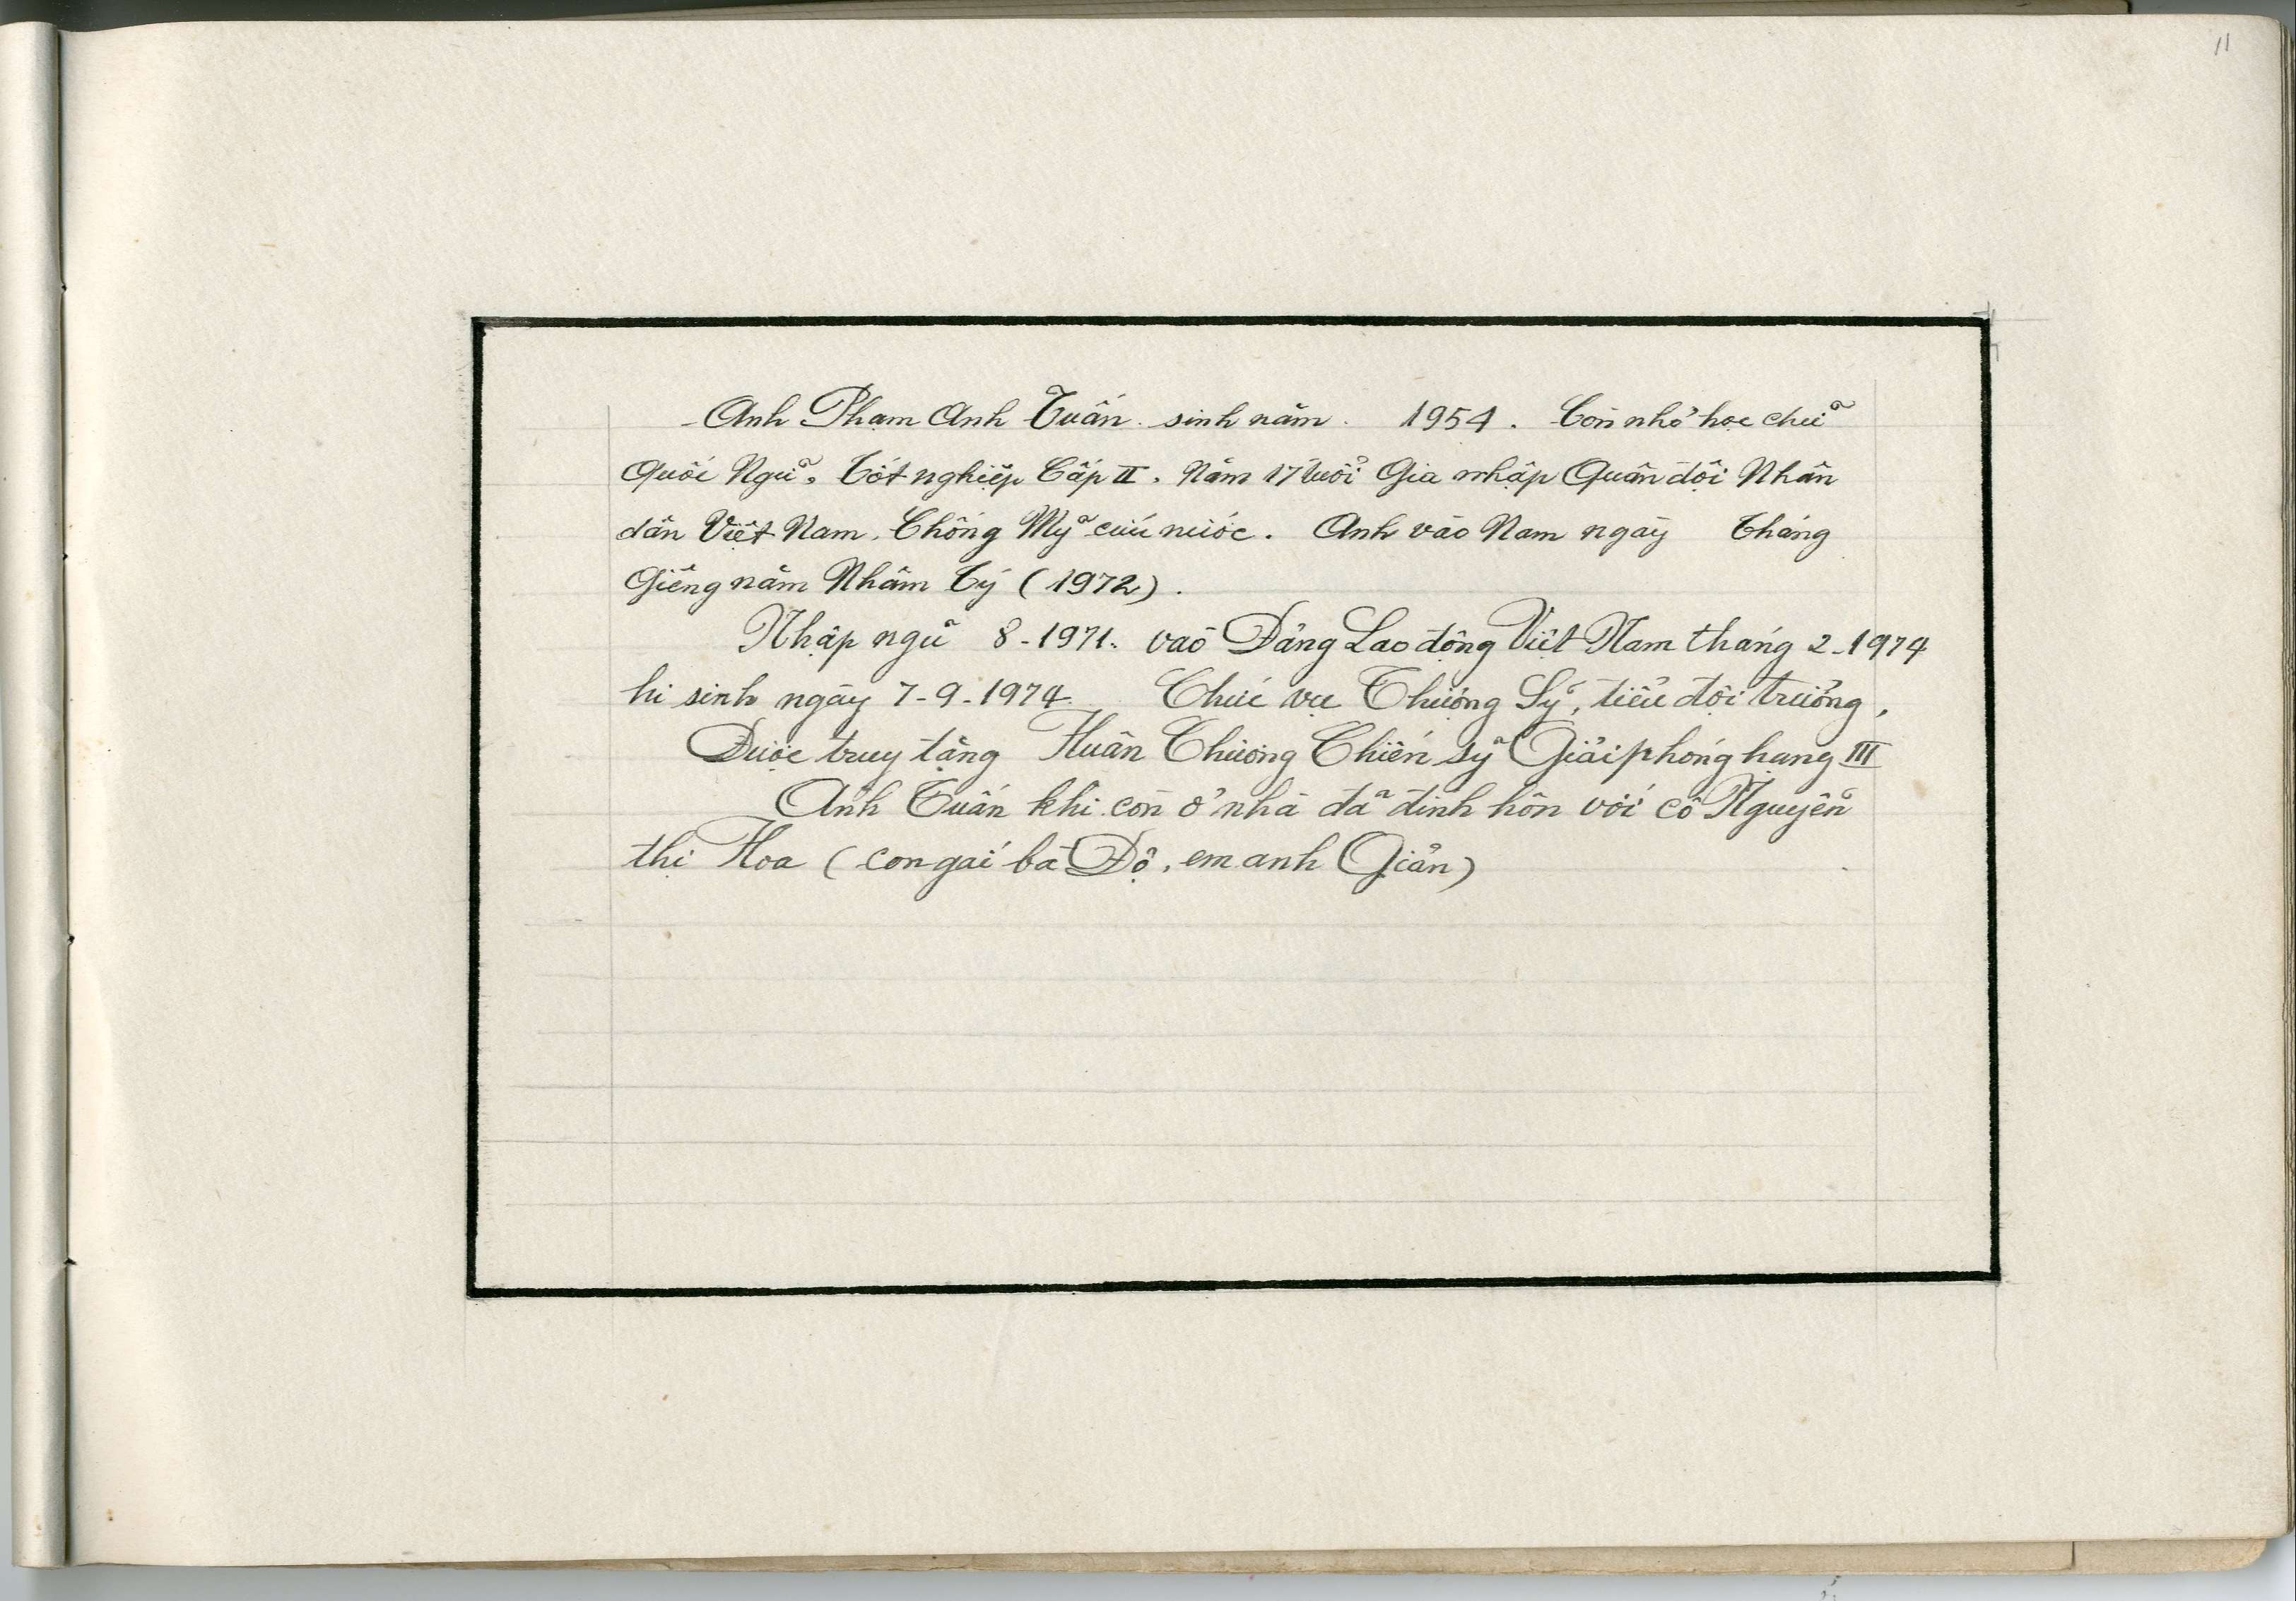 11
- Anh Phạm Anh Tuấn. sinh năm. 1954. Còn nhỏ học chữ
Quốc Ngữ. Tốt nghiệp Cấp II. Năm 17 tuổi Gia nhập Quân đội Nhân
dân Việt Nam. Chống Mỹ cứu nước. Anh vào Nam ngày Tháng
Giêng năm Nhâm Tý (1972).
Nhập ngũ 8-1971. vào Đảng Lao động Việt Nam tháng 2-1974
hi sinh ngày 7-9-1974. Chức vụ Thượng Sỹ, tiểu đội trưởng,
Được truy tặng Huân Chương Chiến sỹ Giải phóng hạng III
Anh Tuấn khi còn ở nhà đã đính hôn với cô Nguyễn
thị Hoa (con gái bà Độ, em anh Giản)